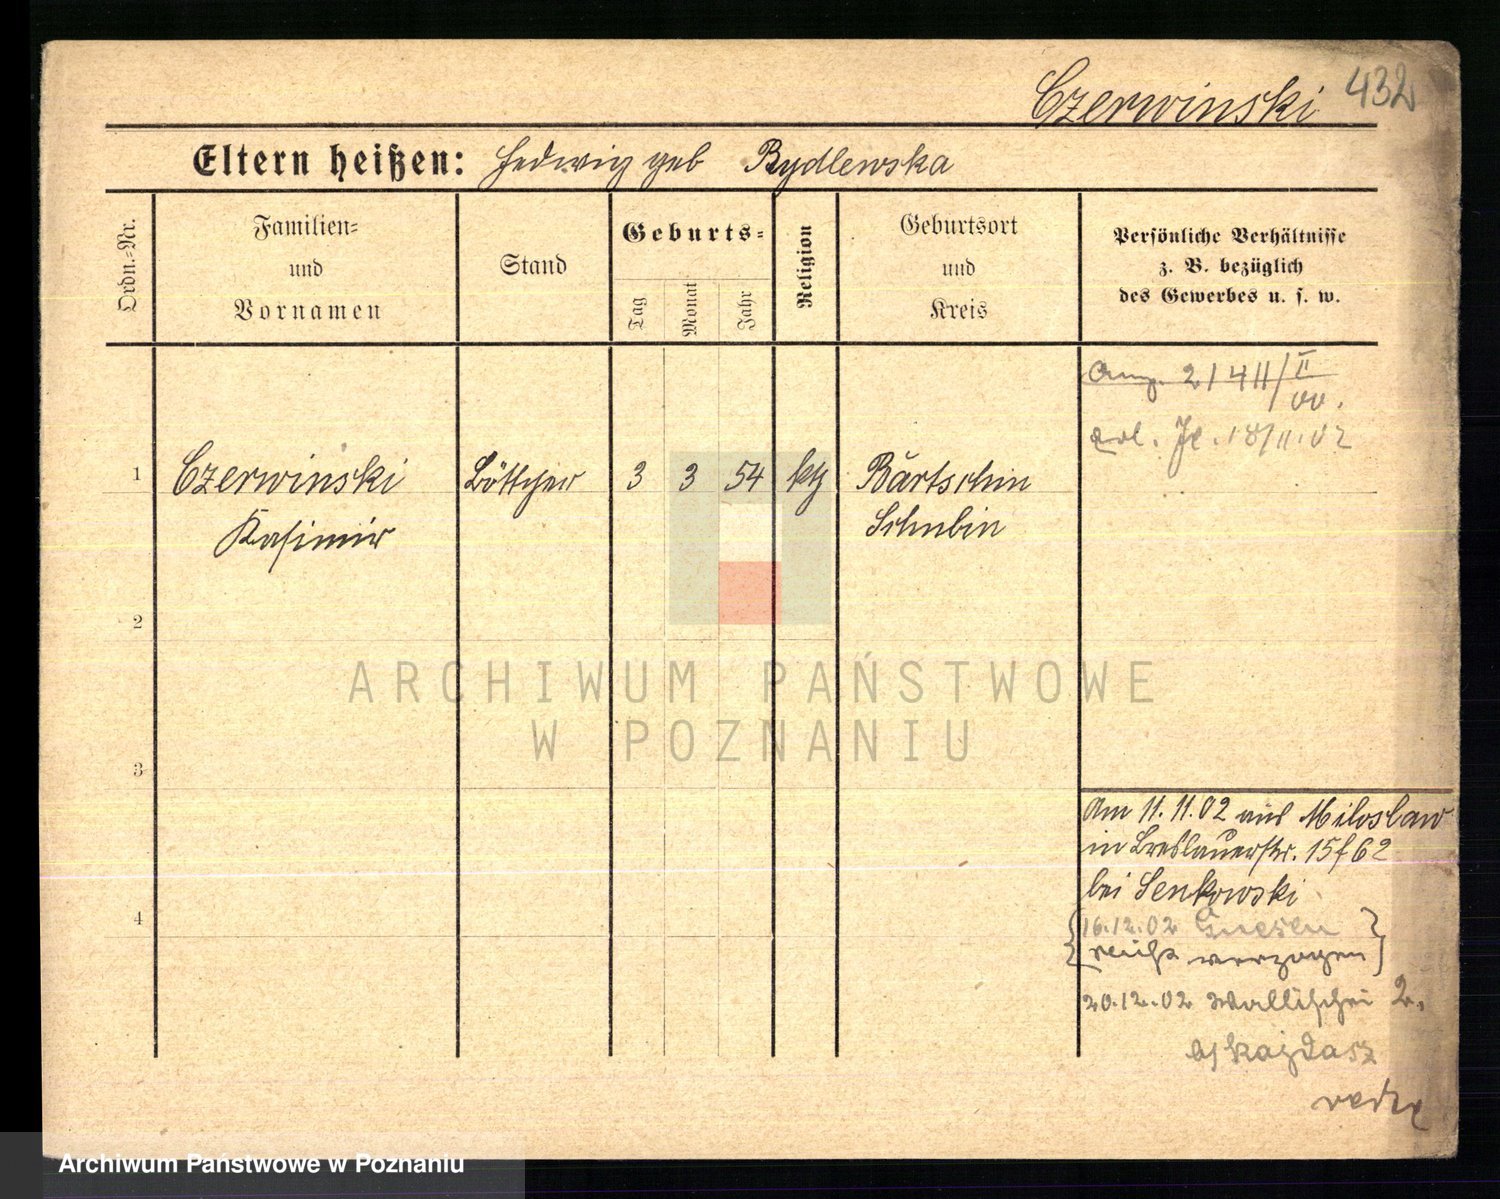 Czerwinski 432
Eltern heißen: Hedwig geb Rydlewska
Ordn.-Nr.
Familien-
und
Vornamen
Stand
Geburts-
Tag
Monat
Jahr
Religion
Geburtsort
und
Kreis
Persönliche Verhältnisse
z. B. bezüglich
des Gewerbes u. s. w.
21411/II
00.
18/11.02
1 Czerwiński Böttcher 3 3 54 kth Bärtschin
Kasimir Schubin
2
3
4
Am 11.11.02 aus Miloslaw
in Breslauerstr. 15
bei Senkowski
16.12.02 Gnesen
nicht verzogen
20.12.02 Wallischei 2.
b/ Kajdasz
ARCHIWUM PAŃSTWOWE
W POZNANIU
Archiwum Państwowe w Poznaniu